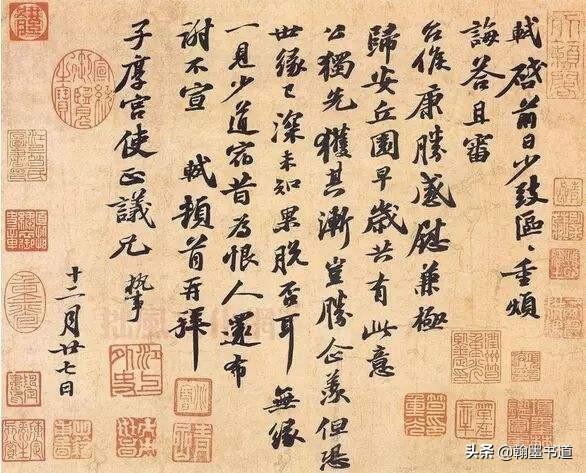 軾啓前日少致區〻重煩
誨答且審
台候康勝感慰兼極
歸安丘園早歲共有此意
公獨先獲其漸豈勝企羨但恐
世緣已深未知果脫否耳無緣
一見少道宿昔為恨人還布
謝不宣 軾頓首再拜
子厚宮使正議兄執事
十二月廿七日
头条 @翰墨书道